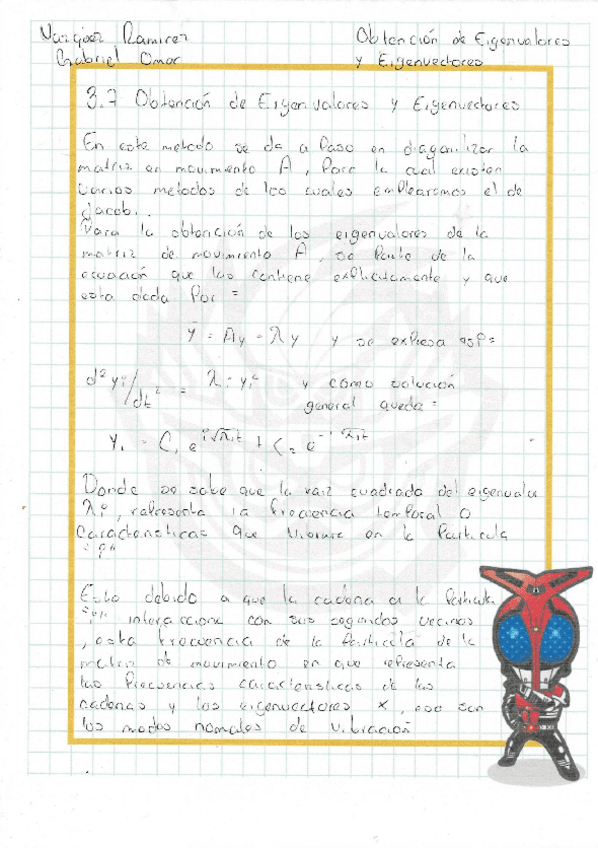 Vazquez Ramirez
Gabriel Omar
Obtención de Eigenvalores
y Eigenvectores
3.7 Obtención de Eigenvalores y Eigenvectores
En este metodo se da a Paso en diagonilizar la
matriz en movimiento A, Para la cual existen
varios metodos de los cuales emplearemos el de
Jacobi.
Para la obtención de los eigenvalores de la
matriz de movimiento A, se Parte de la
ecuación que los contiene explicitamente y que
esta dada Por =
ÿ = Ay = λy y se expresa así =
d²yi/dt² = λi yi y como solución
general queda =
Yi = C₁ e^i√λit + C₂ e^-i√λit
Donde se sabe que la raiz cuadrada del eigenvalor
λi, representa la frecuencia temporal o
Caracteristicas que en la Particula
Esto debido a que la cadena a la Particula
interacciona con sus segundos vecinos
, esta frecuencia de la Particula de la
matriz de movimiento en que representa
las frecuencias caracteristicas de las
cadenas y los eigenvectores x, eso son
los modos normales de vibración